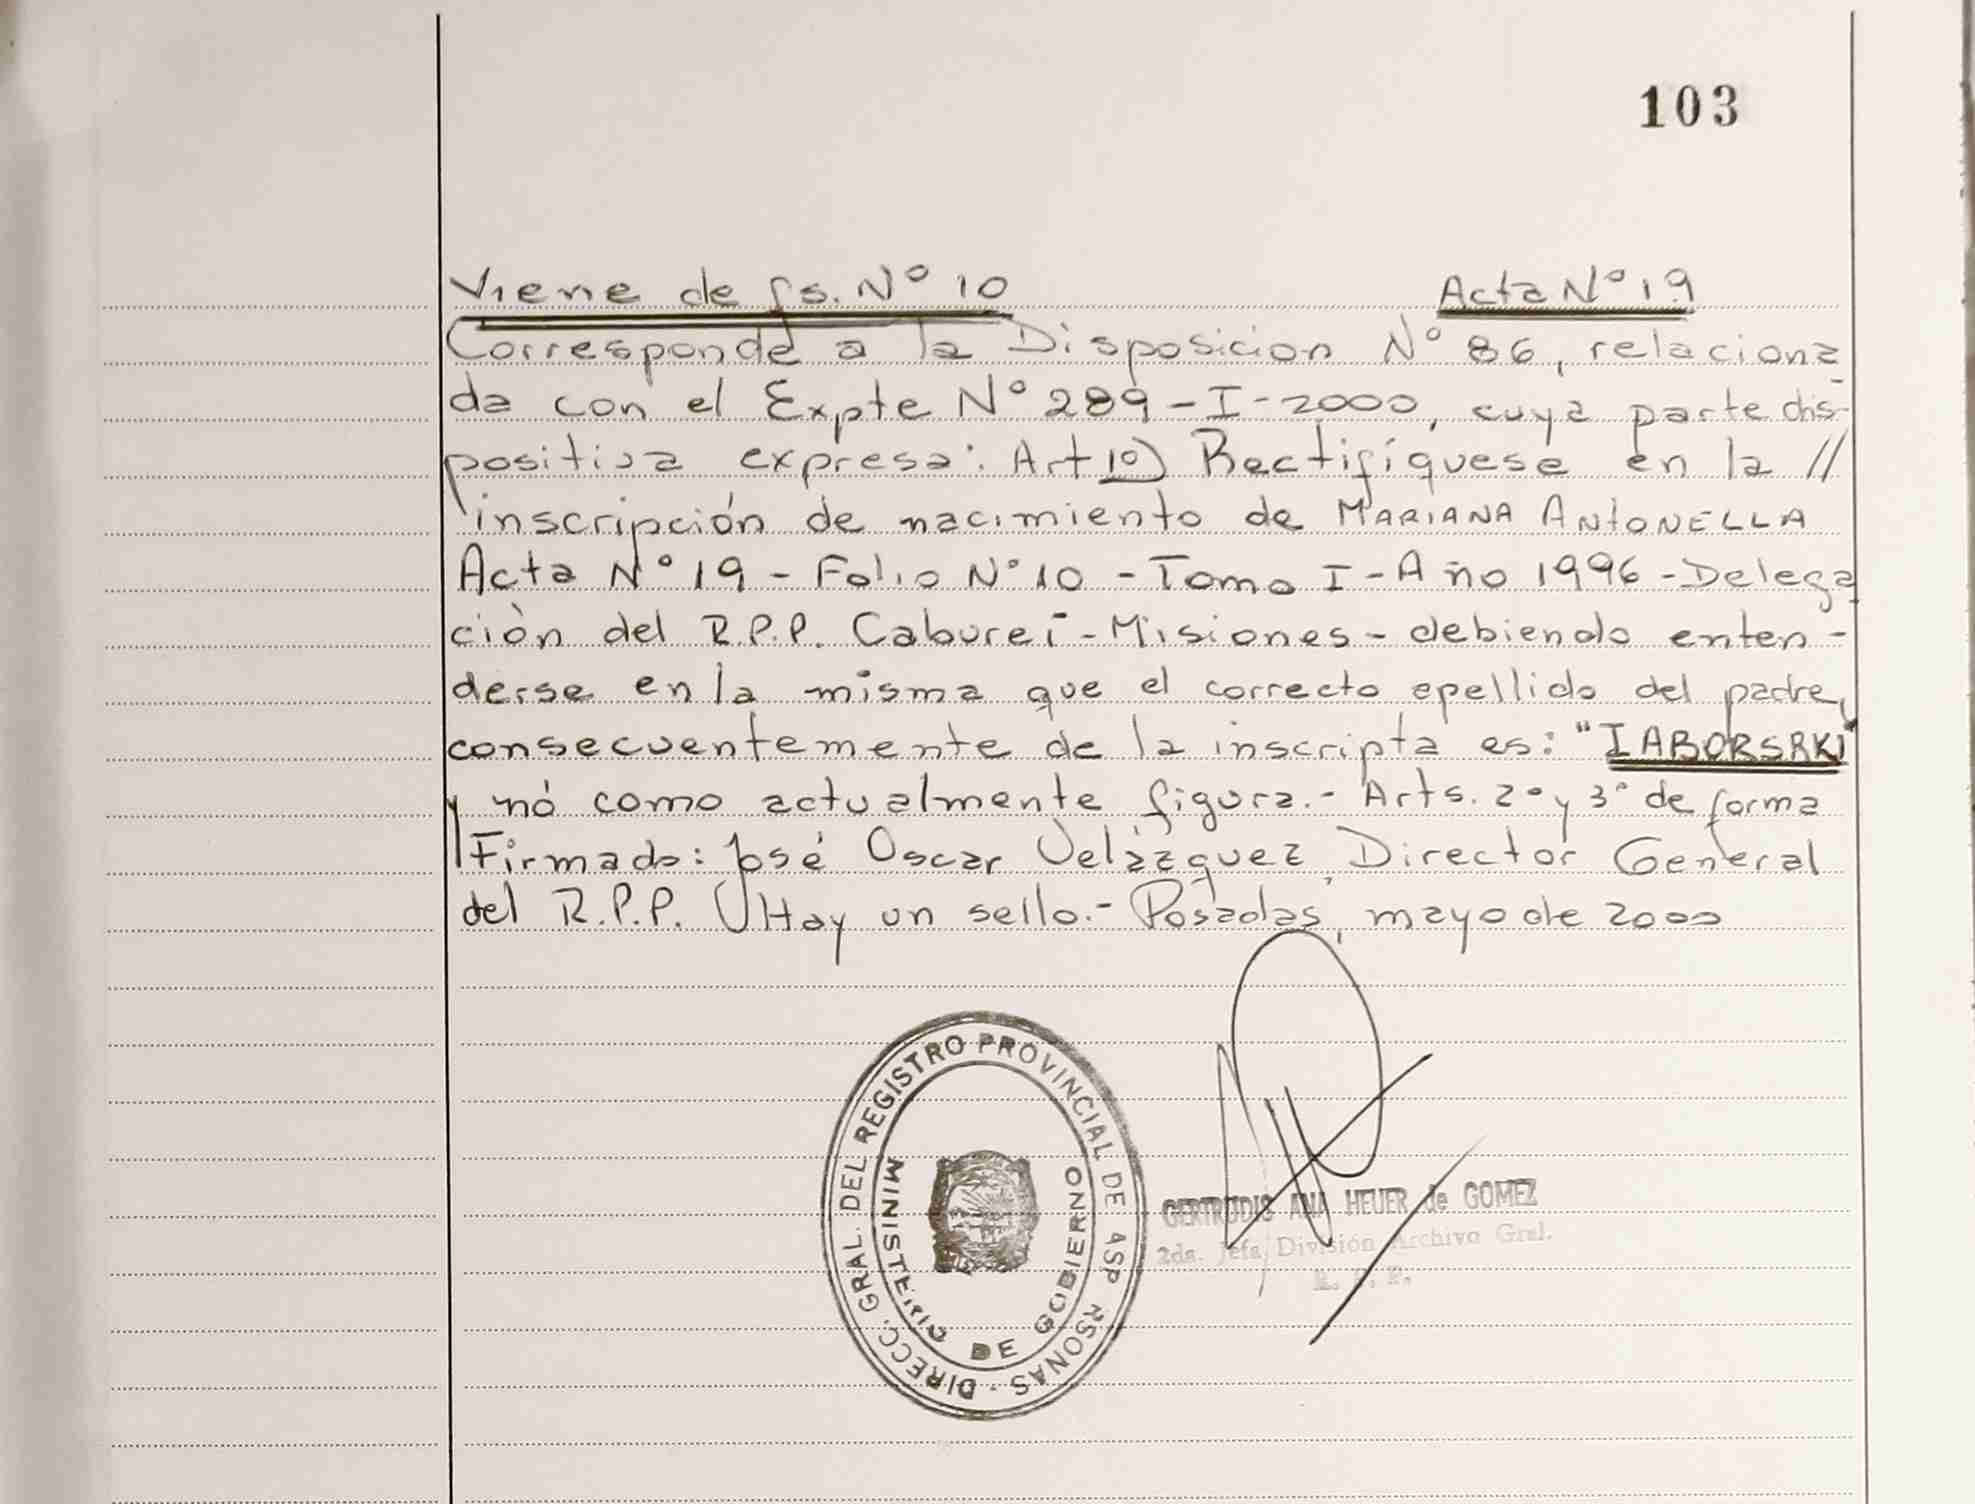 103
Viene de fs. Nº 10 Acta Nº 19
Corresponde a la Disposicion Nº 86, relaciona
da con el Expte Nº 289-I-2000, cuya parte dis-
positiva expresa: Art 1º) Rectifíquese en la //
inscripción de nacimiento de MARIANA ANTONELLA
Acta Nº 19 - Folio Nº 10 - Tomo I - Año 1996 - Delega
ción del R.P.P. Caburei - Misiones - debiendo enten-
derse en la misma que el correcto apellido del padre,
consecuentemente de la inscripta es: "IABORSRKI"
y nó como actualmente figura.- Arts. 2º y 3º de forma
Firmado: José Oscar Velázquez, Director General
del R.P.P. Hay un sello.- Posadas, mayo de 2000
DIRECC. GRAL. DEL REGISTRO PROVINCIAL DE ASP RSONAS
MINISTERIO DE GOBIERNO
GERTRUDIS ANA HEUER de GOMEZ
2da. Jefa División Archivo Gral.
R. P. P.